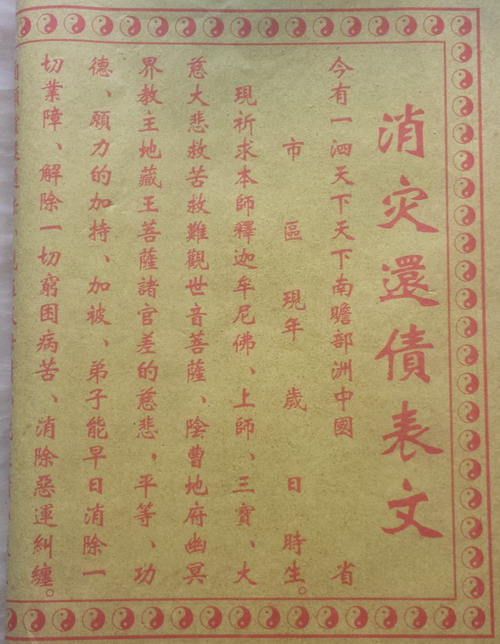 消灾還債表文
今有一泗天下天下南贍部洲中國 省
市 區 現年 歲 日 時生。
現祈求本師釋迦牟尼佛、上師、三寶、大
慈大悲救苦救難觀世音菩薩、陰曹地府幽冥
界教主地藏王菩薩諸官差的慈悲，平等、功
德、願力的加持、加被、弟子能早日消除一
切業障、解除一切窮困病苦、消除惡運糾纏。